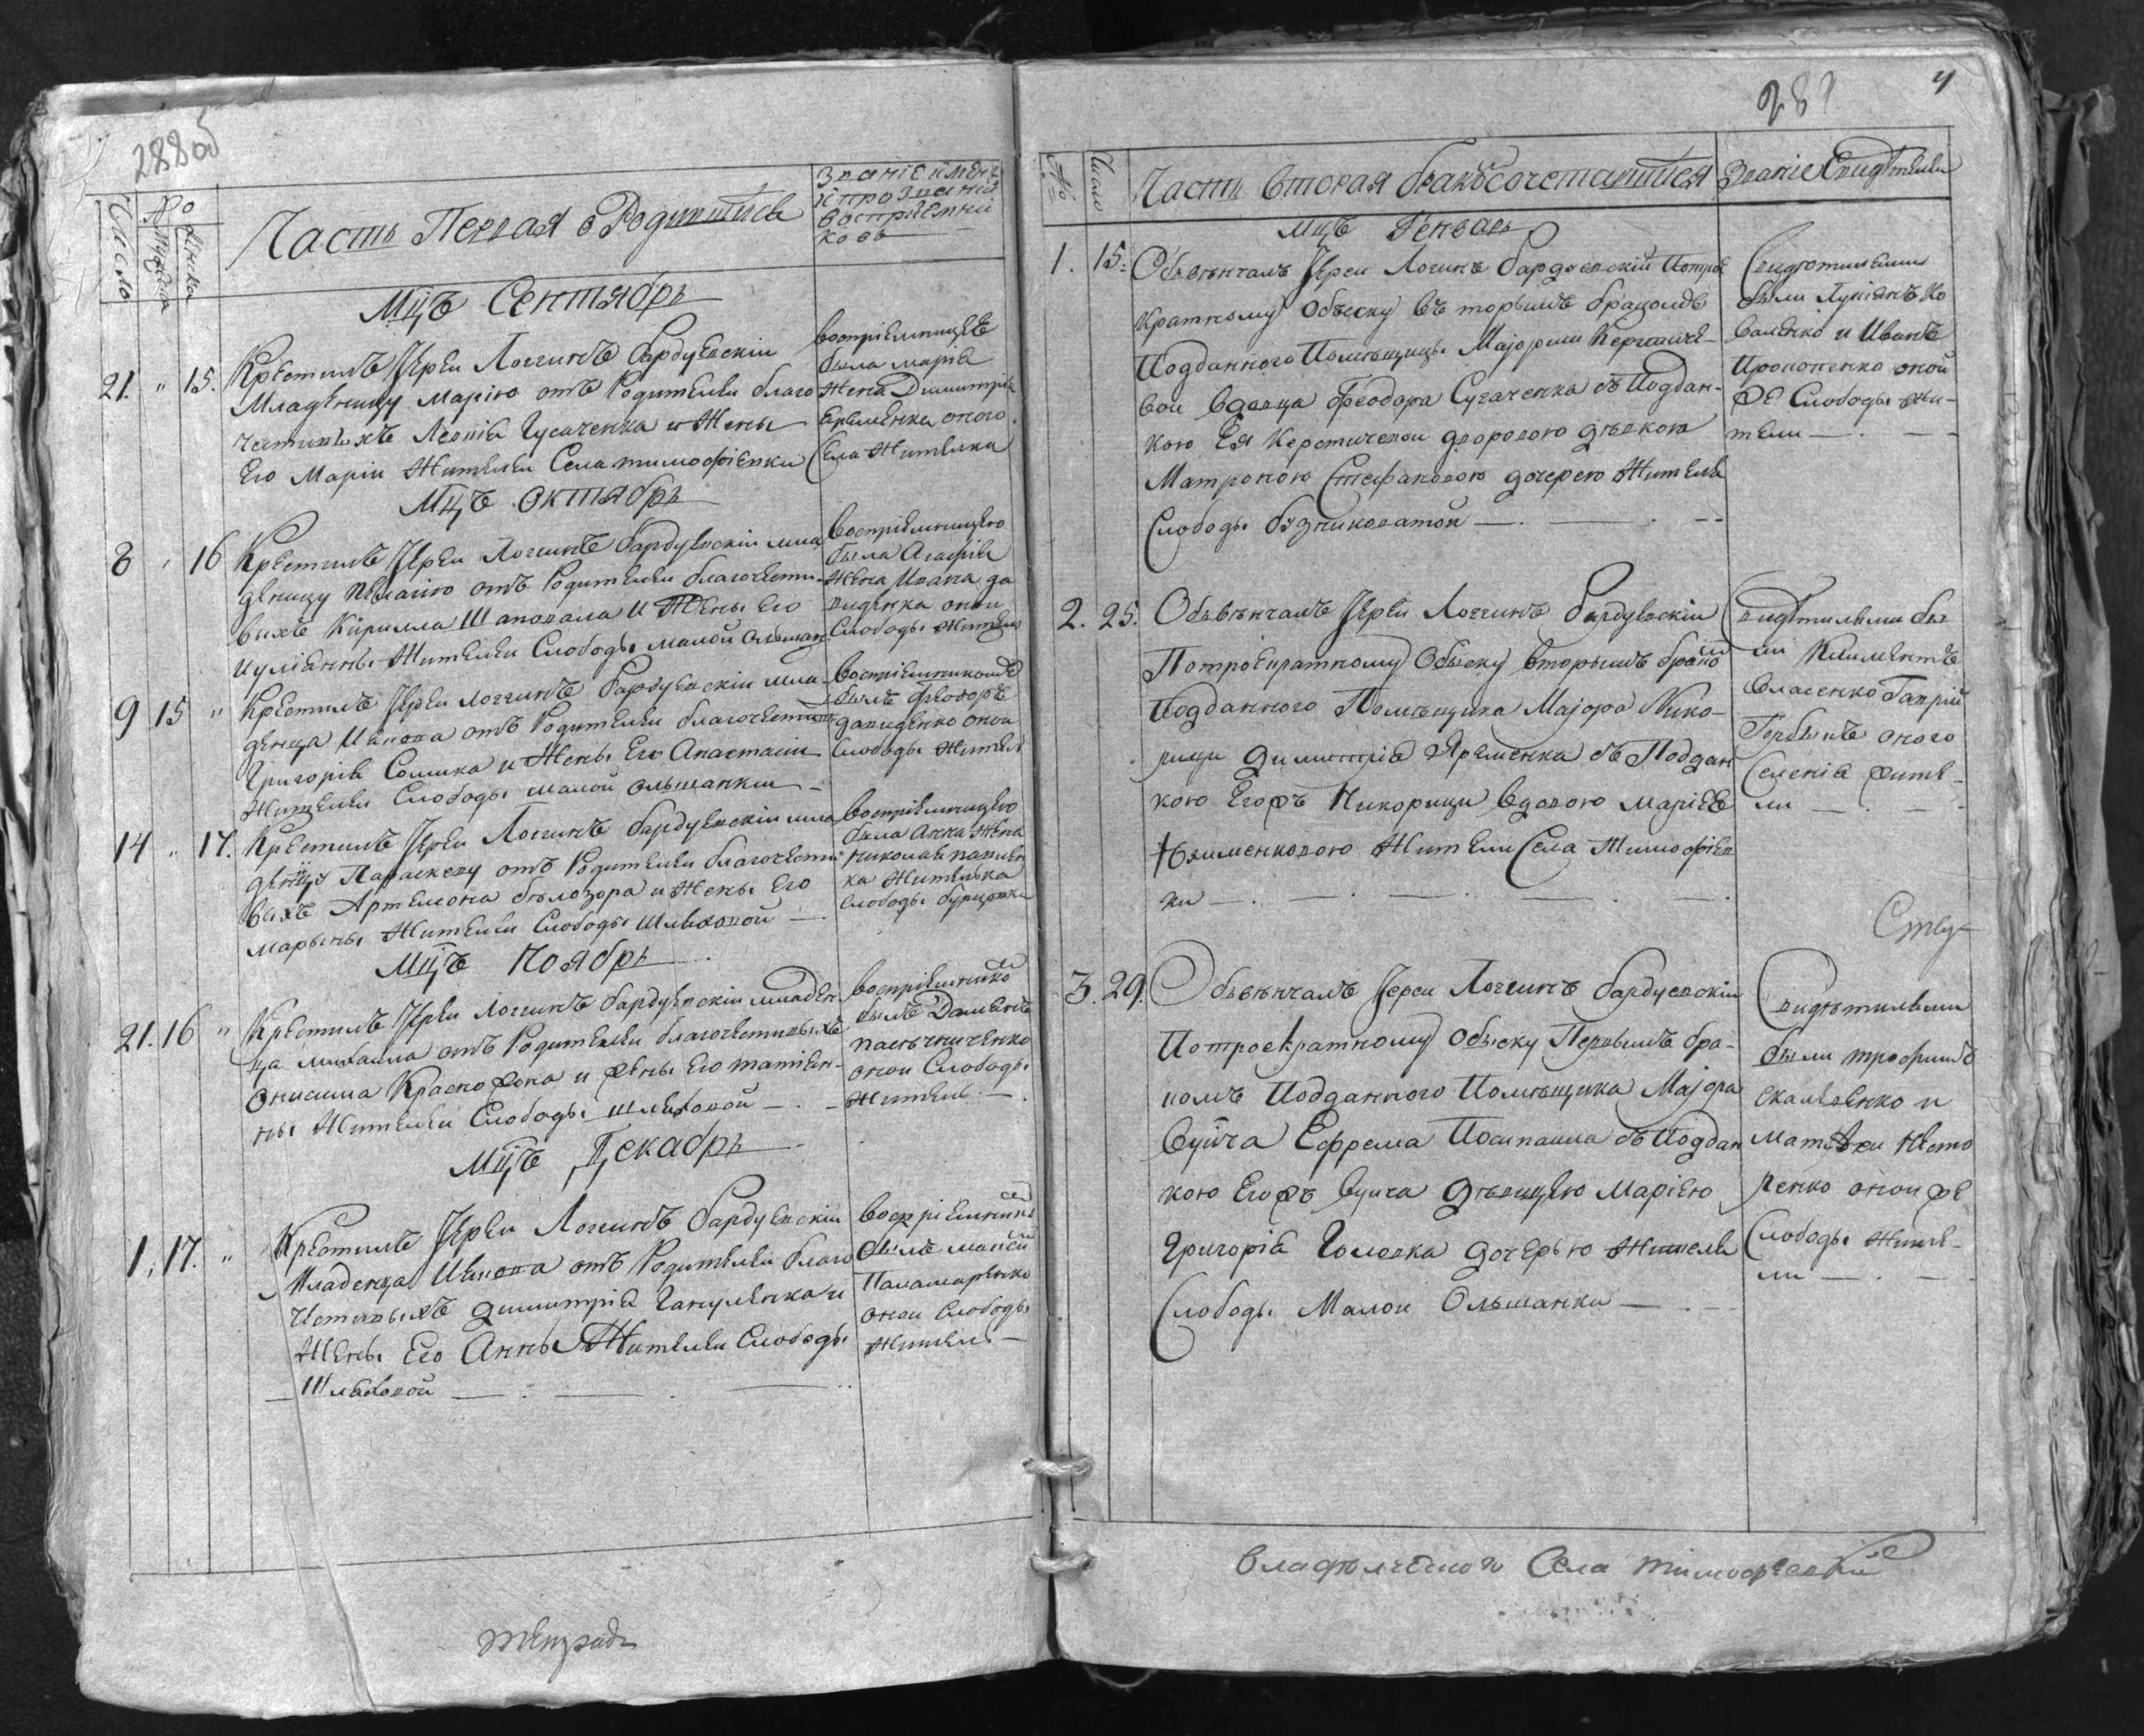 288об
Число
Часть Первая о Родившихся
Званіе имена
и прозваній
воспріемни
ковъ
Мцъ Сентябрь
21. " 15. Крестилъ Іерей Логгинъ Бардуевскій
Младеницу Марію отъ Родителей благо
честивыхъ Леонія Гусаченка и Жены
Его Маріи Жителей Села Тимофіевки
воспріемницею
была Марія
жена Димитрія
Еременка оного
Села Жителка
Мцъ Октябрь
8 " 16 Крестилъ Іерей Логгинъ Бардуевскій мла
деницу Пелагію отъ Родителей благочести-
выхъ Кирилла Шаповала и Жены Его
Иуліанны Жителей Слободы Малой Ольшан
воспріемницею
была Агафія
жена Ивана да
виденка оной
Слободы Жител
9 15 " Крестилъ Іерей Логгинъ Бардуевскій мла-
денца Иакова отъ Родителей благочестив
Григорія Сомика и Жены Его Анастасіи
Жителей Слободы Малой Ольшанки
воспріемникомъ
былъ Феодоръ
давиденко оной
Слободы Житель
14 " 17. Крестилъ Іерей Логгинъ Бардуевскій мла
деницу Параскеву отъ Родителей благочести
выхъ Артемона Белозора и Жены Его
Марыны Жителей Слободы Шляховой
воспріемницею
была Анна жена
Николая
ка Жителька
Слободы
Мцъ Ноябрь
21. 16 " Крестилъ Іерей Логгинъ Бардуевскій младен
ца Михаила отъ Родителей благочестивыхъ
Онисима Краснофона и жены Его татіян-
ны Жителей Слободы Шляховой
воспріемнико
былъ Даміянъ
пасечниченко
оной Слободы
житель
Мцъ Декабрь
1. 17. " Крестилъ Іерей Логгинъ Бардуевскій
Младенца Иакова отъ Родителей благо
честивыхъ Димитрія Гануленка и
Жены Его Анны Жителей Слободы
Шляховой
воспріемник
былъ Мойсей
Паламаренко
оной Слободы
житель
289
4
№
Число
Часть Вторая бракосочетавшихся
Званіе Свидетелей
Мцъ Генварь
1. 15. Обвенчалъ Іереи Логинъ Бардуевскій Потрое
кратному Обыску вторымъ бракомъ
Подданного Помещицы Маіорши Керстиче-
вой Вдовца Феодора Сугаченка съ Поддан-
ною Ея Керстичевой дворовою девкою
Матроною Стефановою дочерею Жителя
Слободы Бузниковатой
Свидетилями
были Лукіянъ Ко
валенко и Иванъ
Прокопенко оной
же Слободы жи-
тели
2. 25. Обвенчалъ Іерей Логгинъ Бардуевскій
Потроекратному Обыску Вторымъ бракомъ
Подданного Помещика Маіора Нико-
рици Димитрія Яременка съ Поддан
ною Егожъ Никорици Вдовою Маріею
Жители Села Тимофіев
ки
Свидетильми бы
ли Климентъ
Власенко Гаврій
Горбынъ оного
Селенія жите-
ли
3. 29. Обвенчалъ Іереи Логгинъ Бардуевскій
Потроекратному Обыску Первымъ бра-
комъ Подданного Помещика Маіора
Вуича Ефрема Посипайла съ Поддан
ною Егожъ Вуича Девицею Маріею
Григорія Головка дочерью Жителя
Слободы Малой Ольшанки
Свидетильми
были Трофимъ
Скалвенко и
Матвеи Несто
ренко оной же
Слободы Жите-
ли
Владельческого Села Тимофеевки